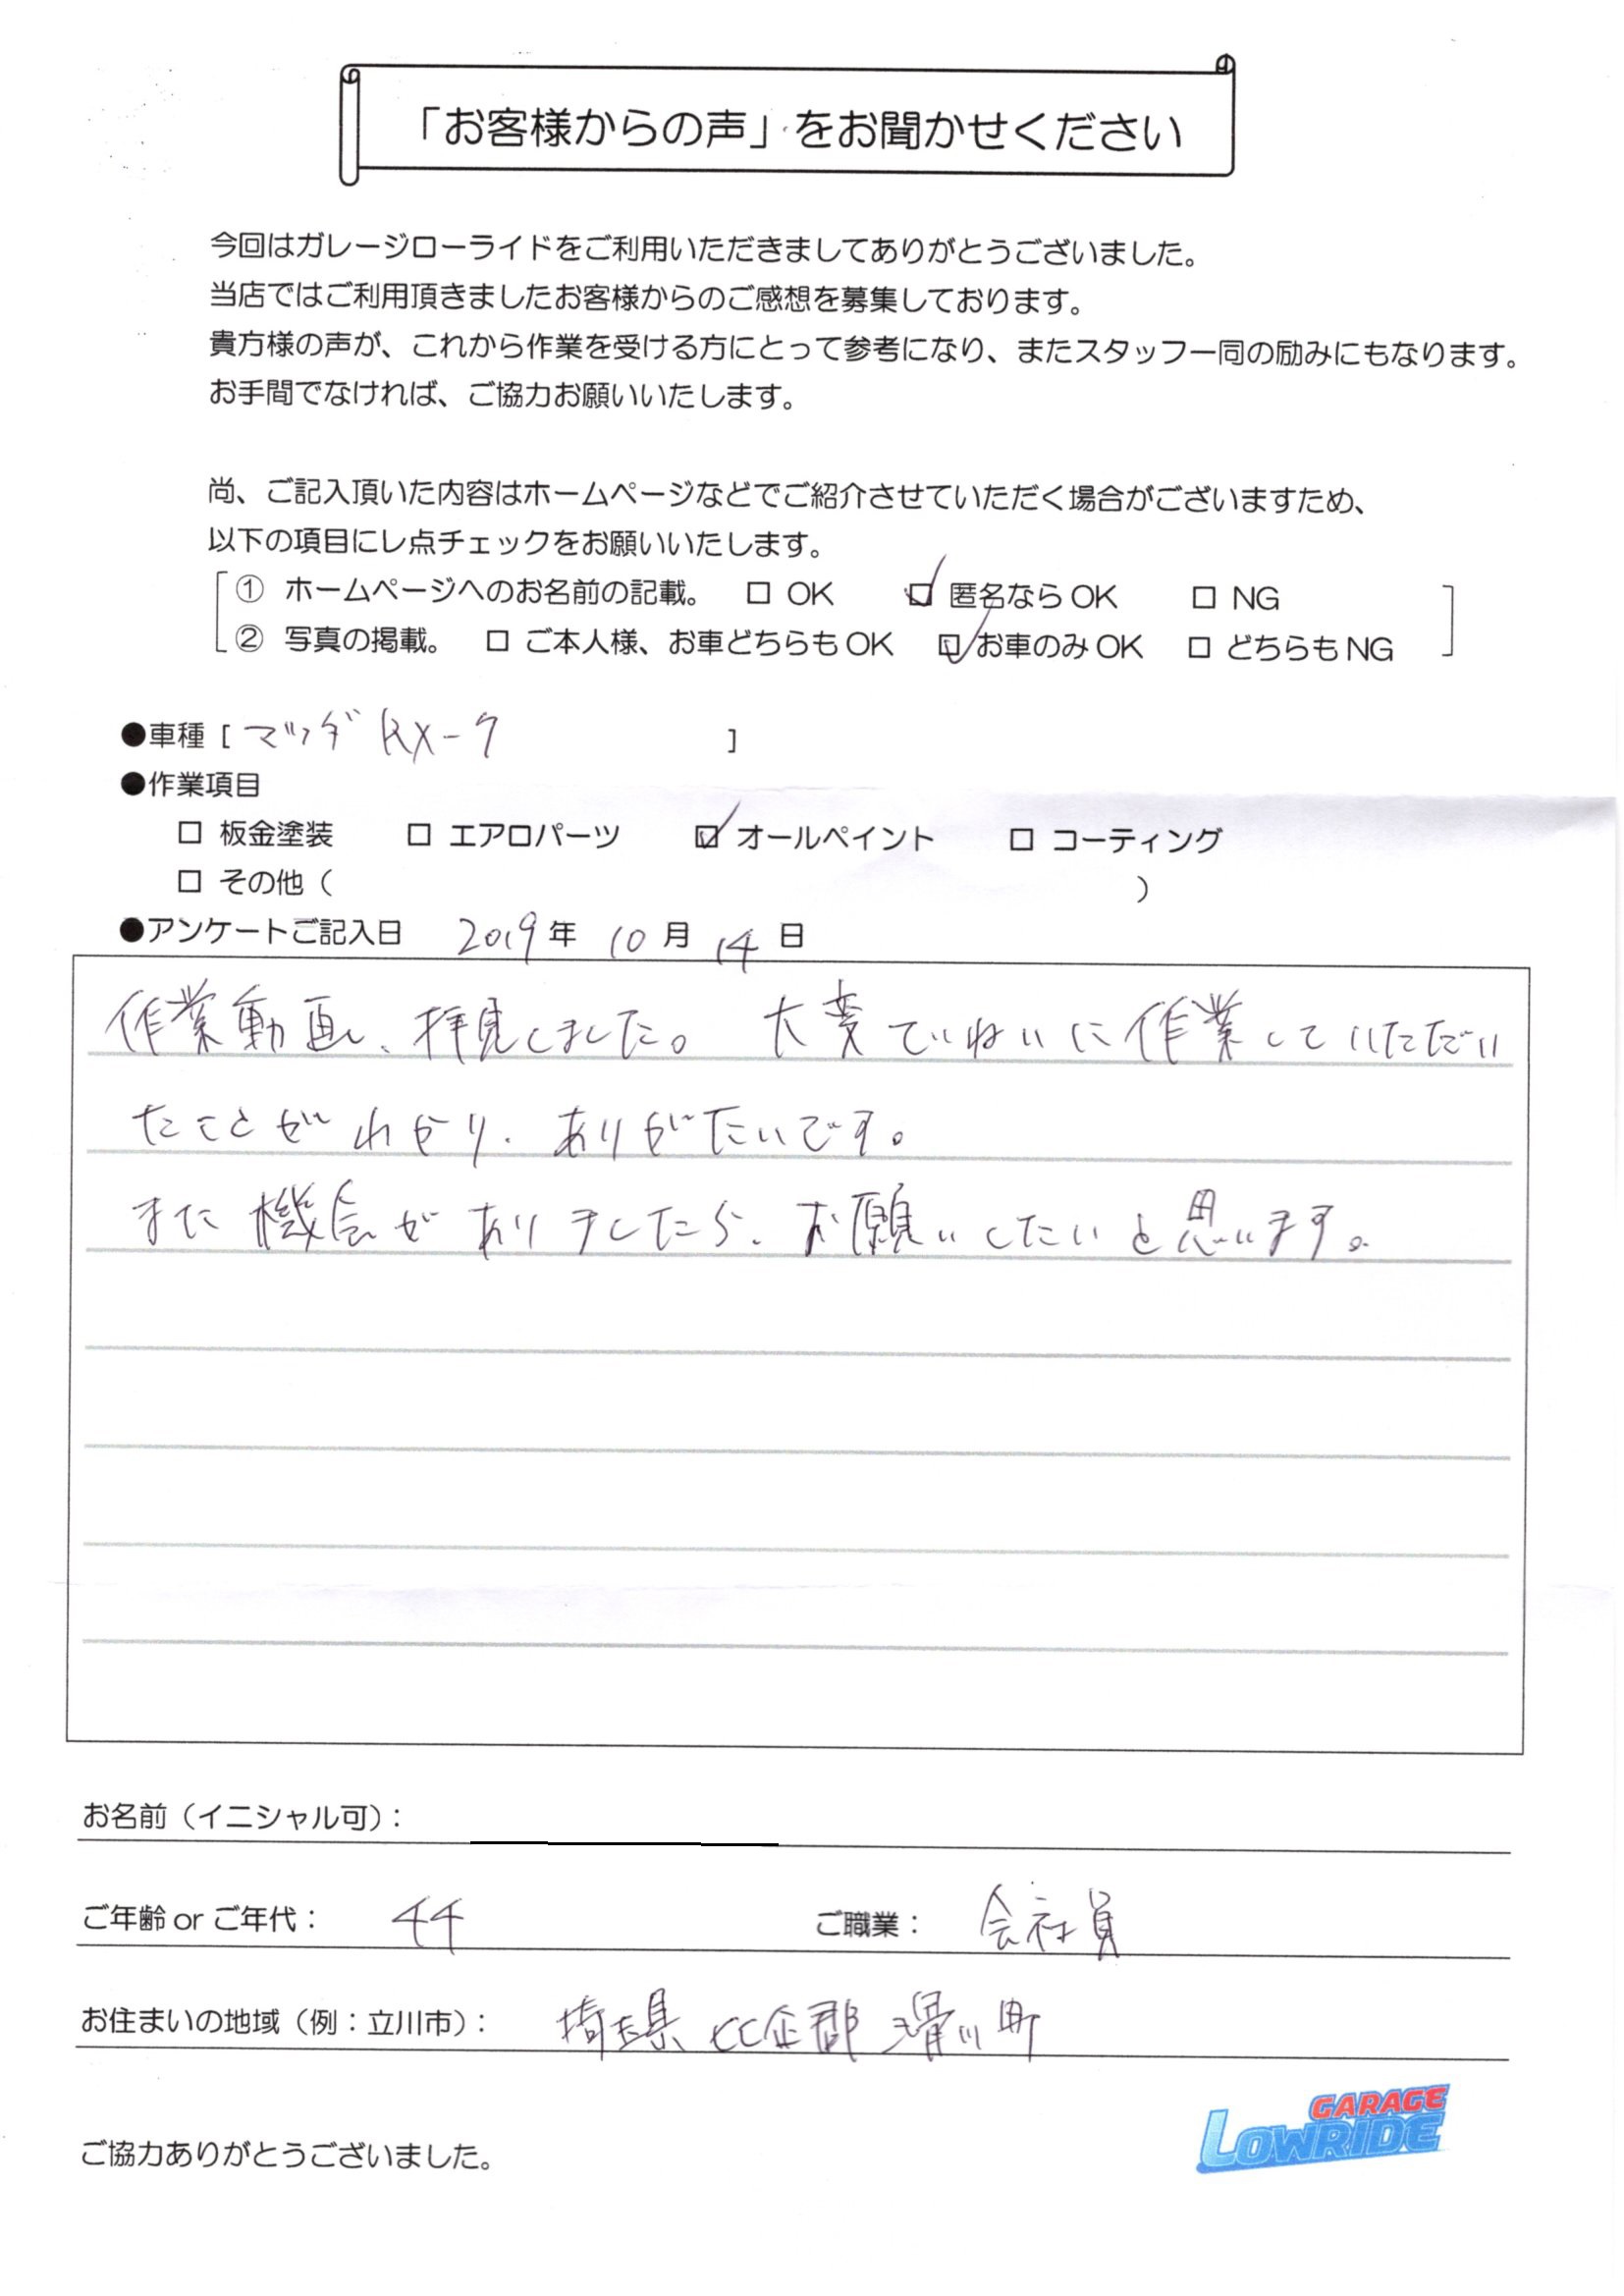 「お客様からの声」をお聞かせください
今回はガレージローライドをご利用いただきましてありがとうございました。
当店ではご利用頂きましたお客様からのご感想を募集しております。
貴方様の声が、これから作業を受ける方にとって参考になり、またスタッフ一同の励みにもなります。
お手間でなければ、ご協力お願いいたします。
尚、ご記入頂いた内容はホームページなどでご紹介させていただく場合がございますため、
以下の項目にレ点チェックをお願いいたします。
① ホームページへのお名前の記載。 □ OK ☑ 匿名なら OK □ NG
② 写真の掲載。 □ ご本人様、お車どちらも OK ☑ お車のみ OK □ どちらも NG
●車種 [ マツダ RX-7 ]
●作業項目
□ 板金塗装 □ エアロパーツ ☑ オールペイント □ コーティング
□ その他（ ）
●アンケートご記入日 2019 年 10 月 14 日
作業動画、拝見しました。大変ていねいに作業していただい
たことがわかり、ありがたいです。
また機会がありましたら、お願いしたいと思います。
お名前（イニシャル可）：
ご年齢 or ご年代： 44 ご職業： 会社員
お住まいの地域（例：立川市）： 埼玉県 比企郡 滑川町
GARAGE
LOWRIDE
ご協力ありがとうございました。